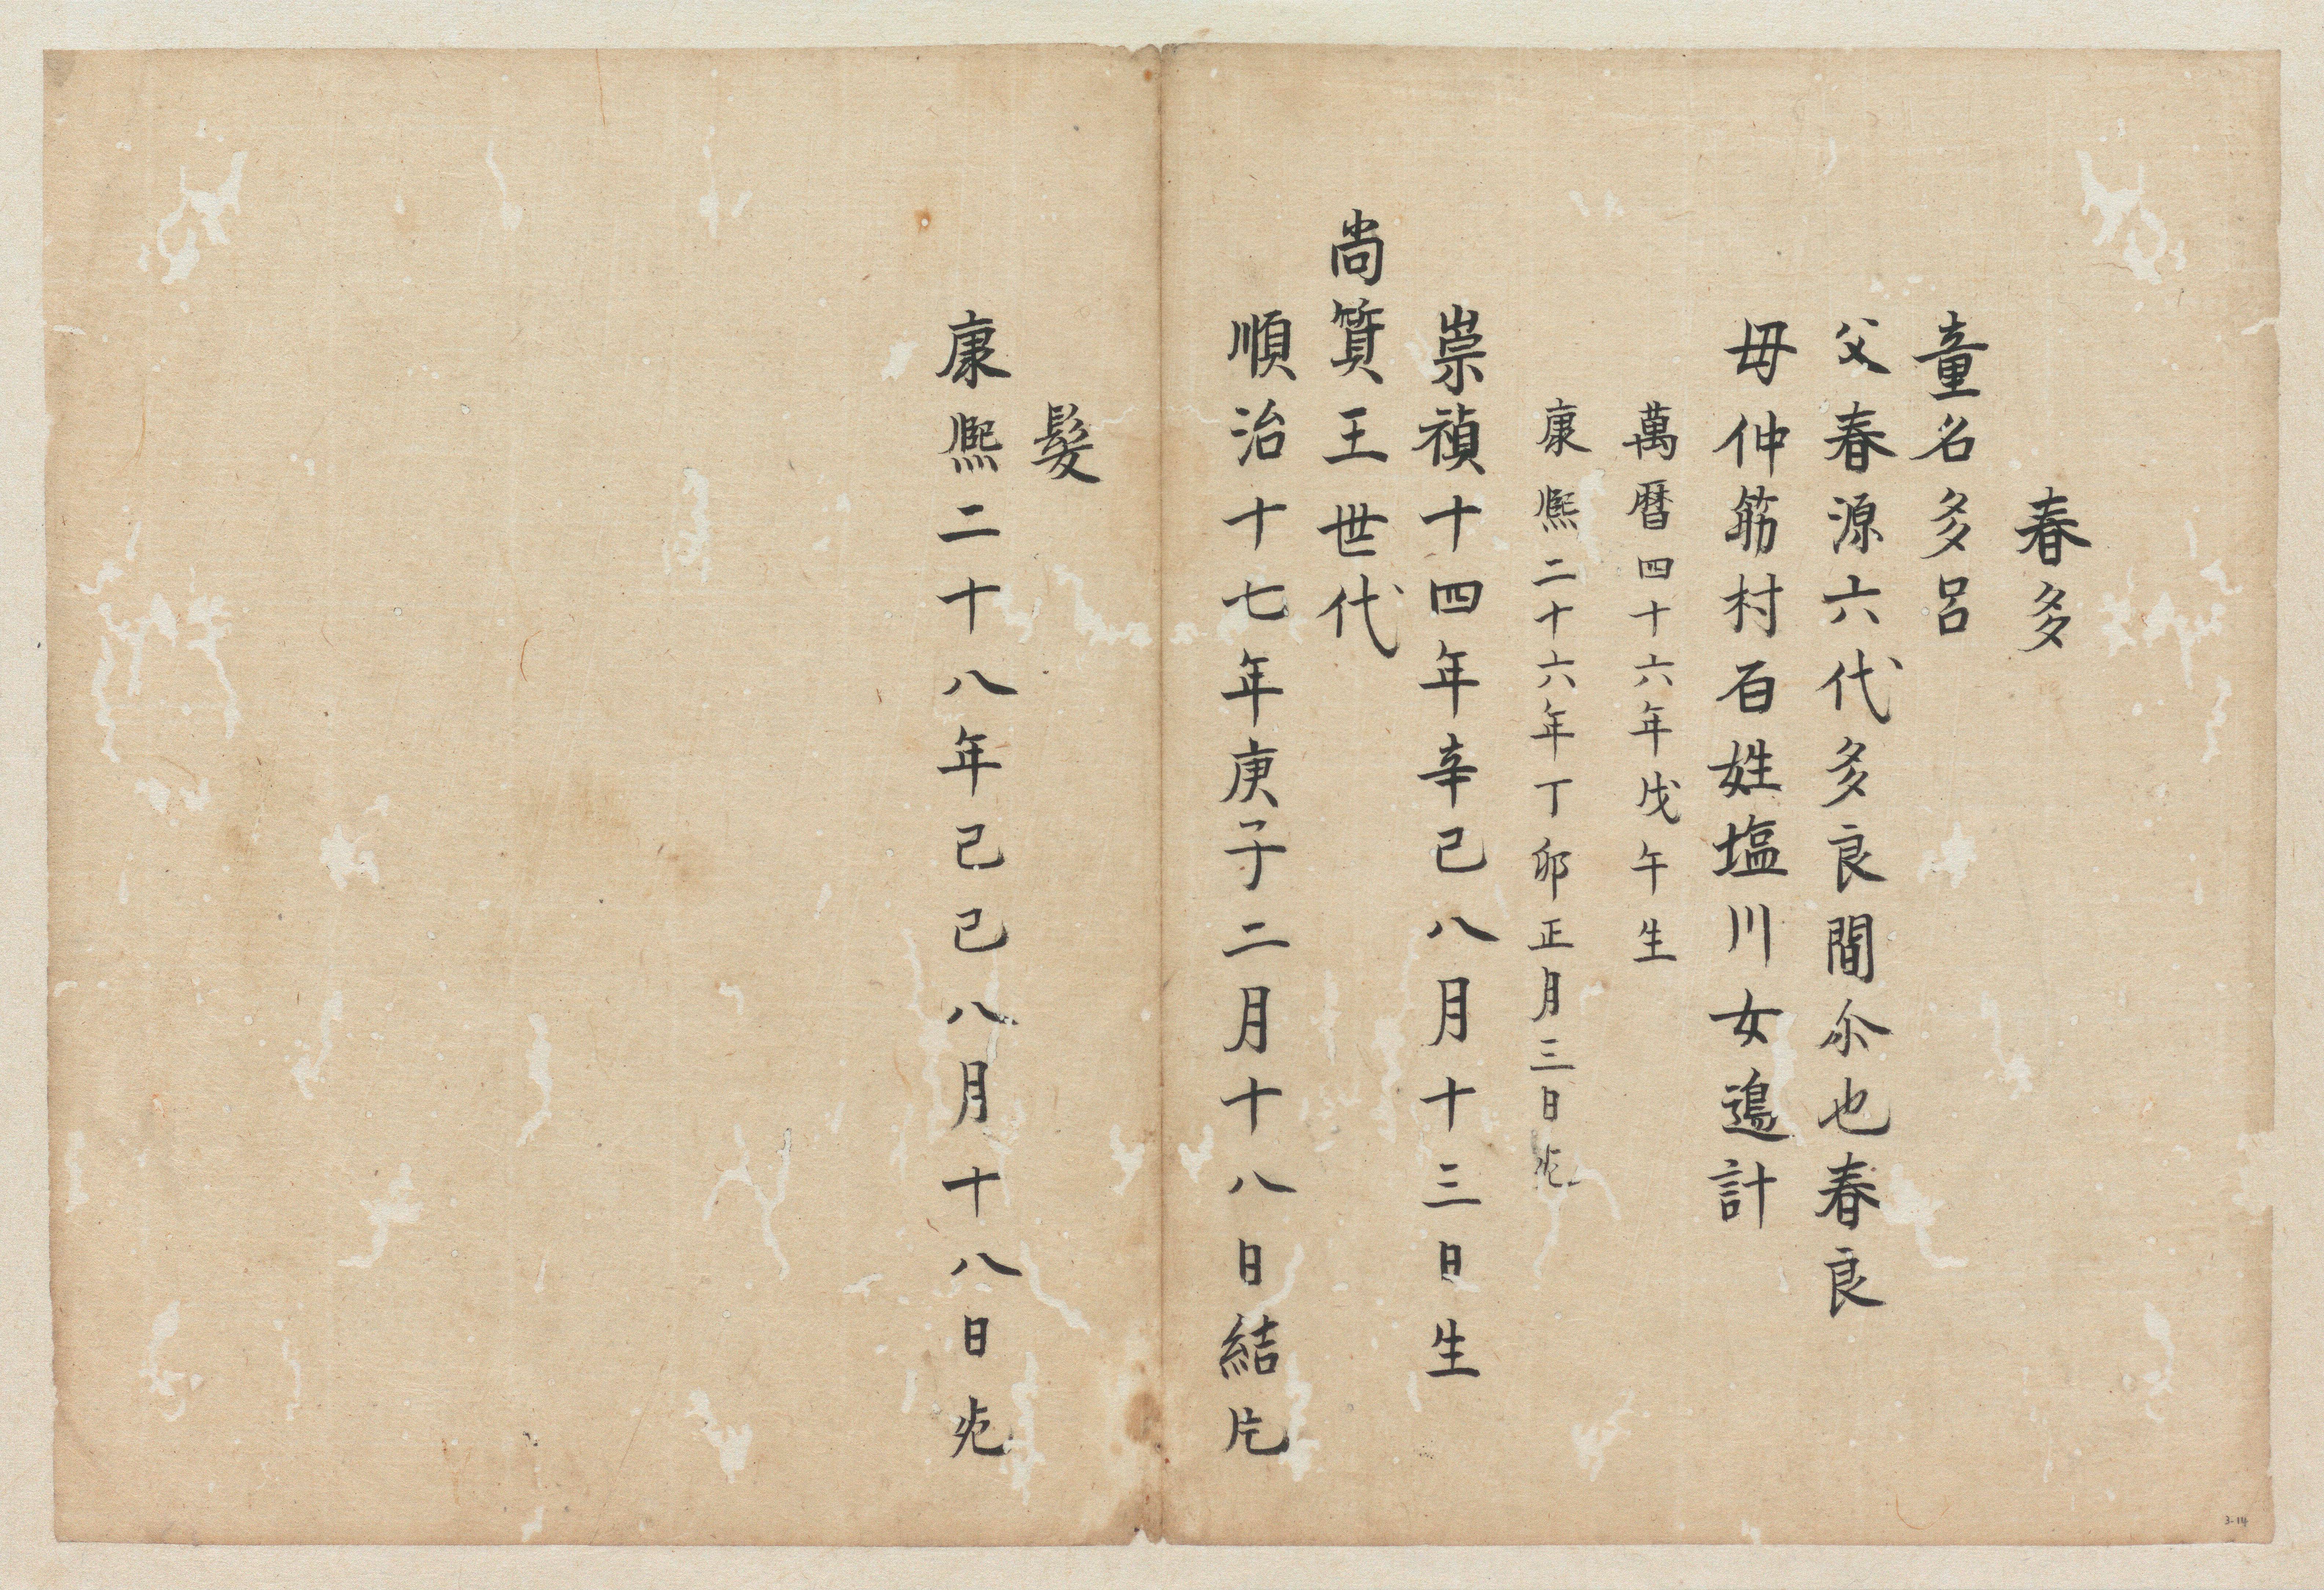 春多
童名多呂
父春源六代多良間尒也春良
母仲筋村百姓塩川女遍計
萬暦四十六年戊午生
康熈二十六年丁卯正月三日死
崇禎十四年辛巳八月十三日生
尚質王世代
順治十七年庚子二月十八日結片
髮
康熈二十八年己巳八月十八日死
3-14